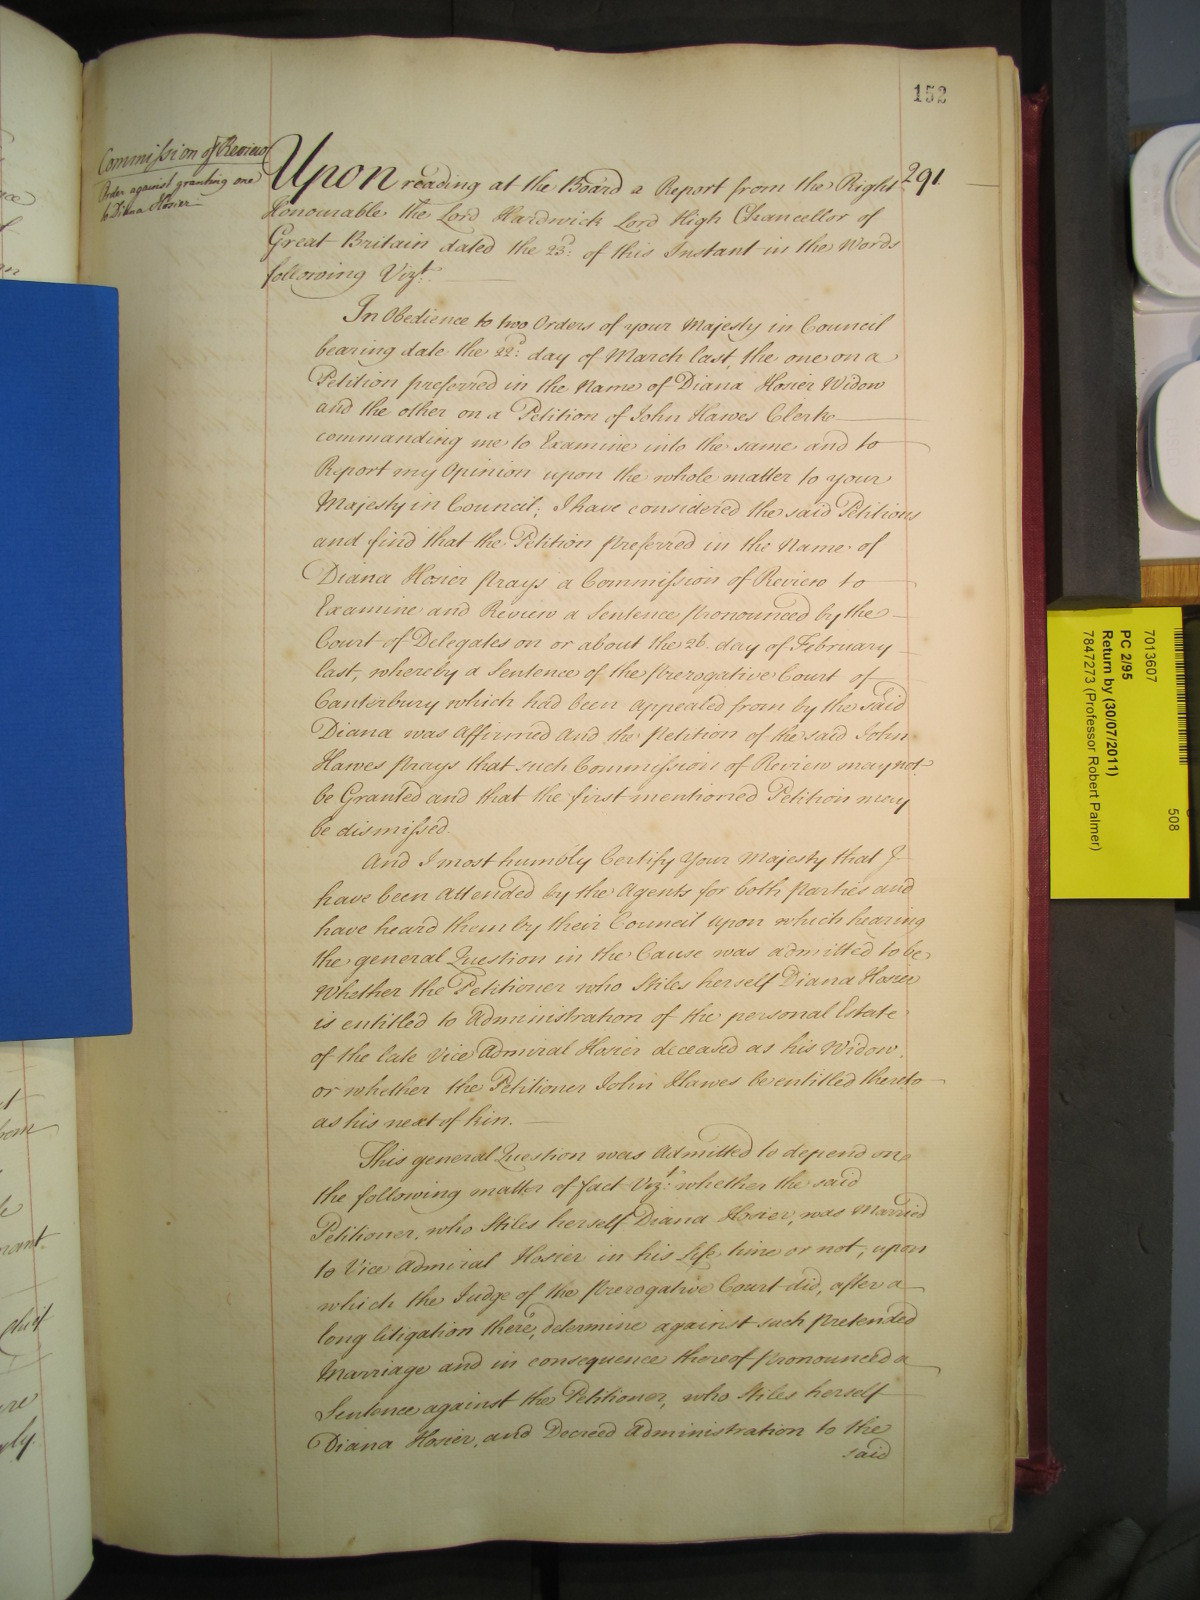 152
291
Commission of Review
Order against granting one
to Diana Hosier
Upon reading at the Board a Report from the Right
Honourable the Lord Hardwick Lord High Chancellor of
Great Britain dated the 23d. of this Instant in the Words
following Vizt.
In Obedience to two Orders of your Majesty in Council
bearing date the 22d. day of March last, the one on a
Petition preferred in the Name of Diana Hosier Widow
and the other on a Petition of John Hawes Clerk
commanding me to Examine into the same and to
Report my Opinion upon the whole matter to your
Majesty in Council; I have considered the said Petitions
and find that the Petition preferred in the Name of
Diana Hosier prays a Commission of Review to
Examine and Review a Sentence pronounced by the
Court of Delegates on or about the 26. day of February
last, whereby a Sentence of the Prerogative Court of
Canterbury which had been appealed from by the said
Diana was Affirmed and the Petition of the said John
Hawes prays that such Commission of Review may not
be Granted and that the first mentioned Petition may
be dismissed.
And I most humbly Certify Your Majesty that I
have been Attended by the Agents for both Parties and
have heard them by their Council upon which hearing
the general Question in the Cause was admitted to be
Whether the Petitioner who Stiles herself Diana Hosier
is entitled to Administration of the personal Estate
of the late Vice Admiral Hosier deceased as his Widow
or whether the Petitioner John Hawes be entitled thereto
as his next of kin.
This general Question was Admitted to depend on
the following matter of fact Vizt: whether the said
Petitioner, who Stiles herself Diana Hosier, was Married
to Vice Admiral Hosier in his Life time or not, upon
which the Judge of the Prerogative Court did, after a
long litigation there, determine against such pretended
Marriage and in consequence thereof pronounced a
Sentence against the Petitioner, who Stiles herself
Diana Hosier, and Decreed Administration to the
said
7013607
508
PC 2/95
Return by (30/07/2011)
7847273 (Professor Robert Palmer)